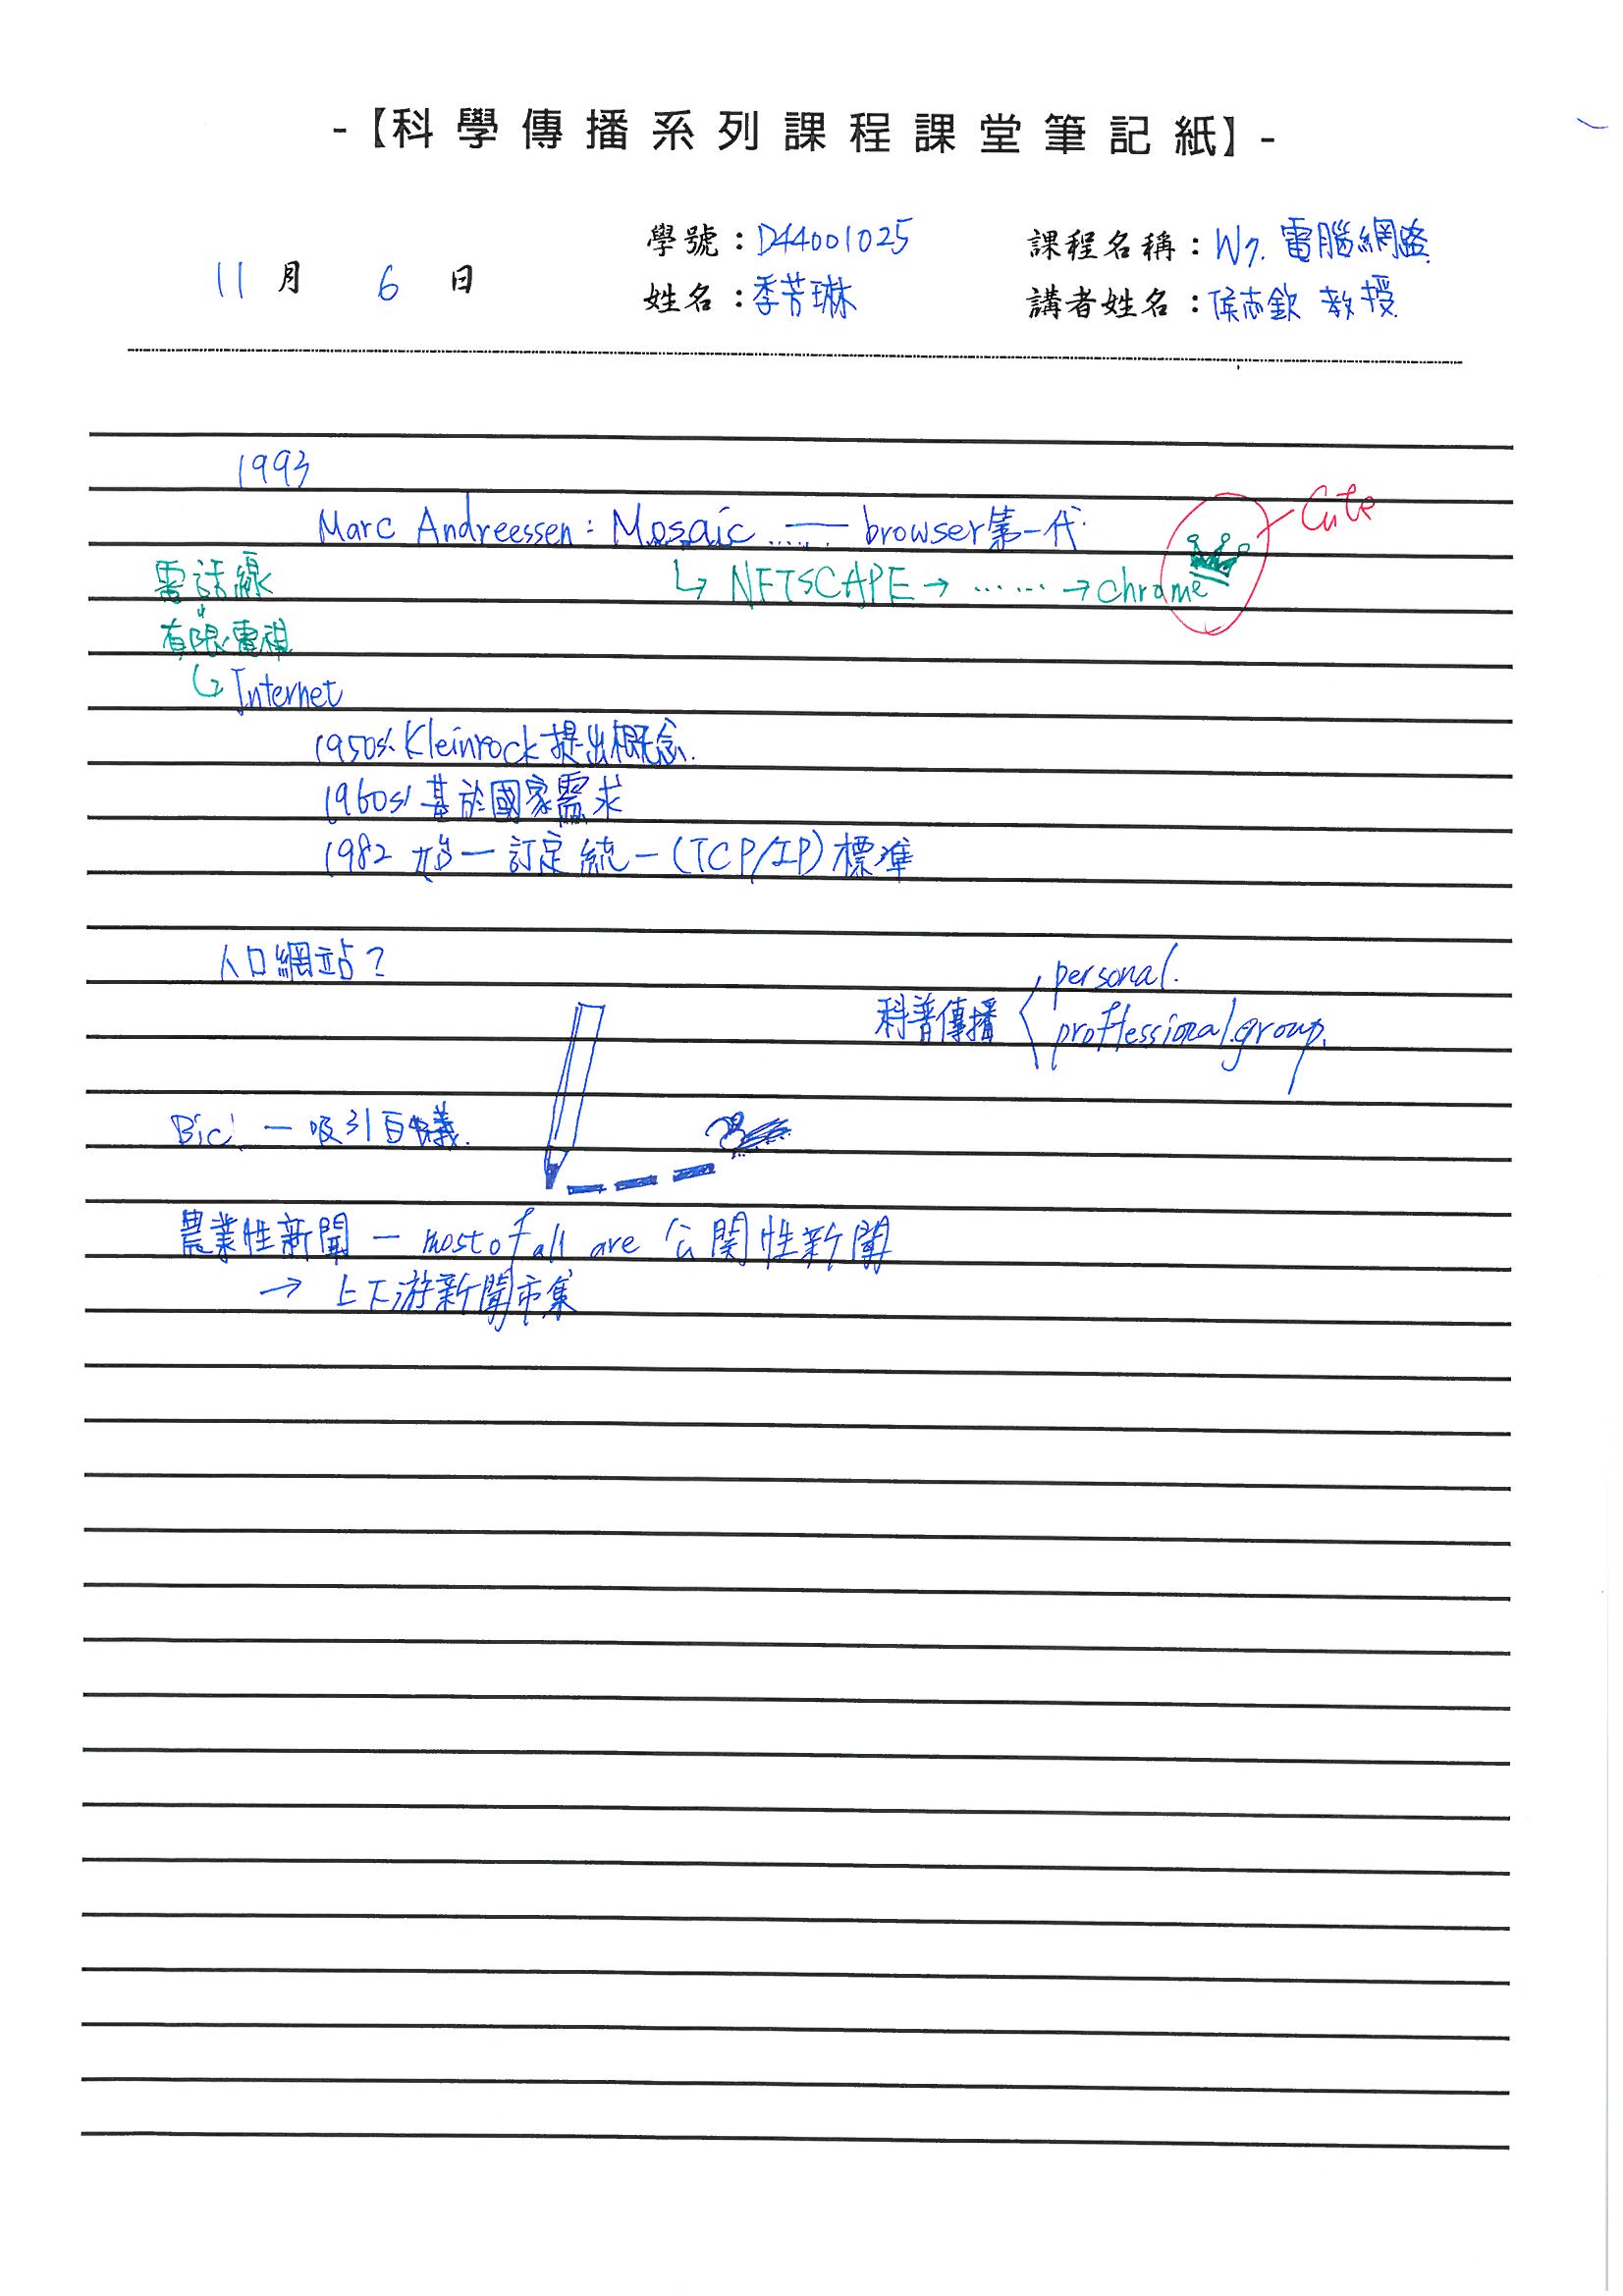 -【科學傳播系列課程課堂筆記紙】-
學號：D44001025 課程名稱：W7. 電腦網路
11 月 6 日 姓名：季芳琳 講者姓名：侯志欽 教授
1993
Cute
Marc Andreessen : Mosaic —— browser第一代
電話線 ↳ NETSCAPE → …… → chrome
有限電視
↳ Internet
1950s' Kleinrock 提出概念.
1960s' 基於國家需求
1982 始 — 訂定統一 (TCP/IP) 標準
入口網站？
科普傳播 personal.
proffessional group.
Bic! — 吸引白蟻.
農業性新聞 — most of all are 公関性新聞
→ 上下游新聞市集